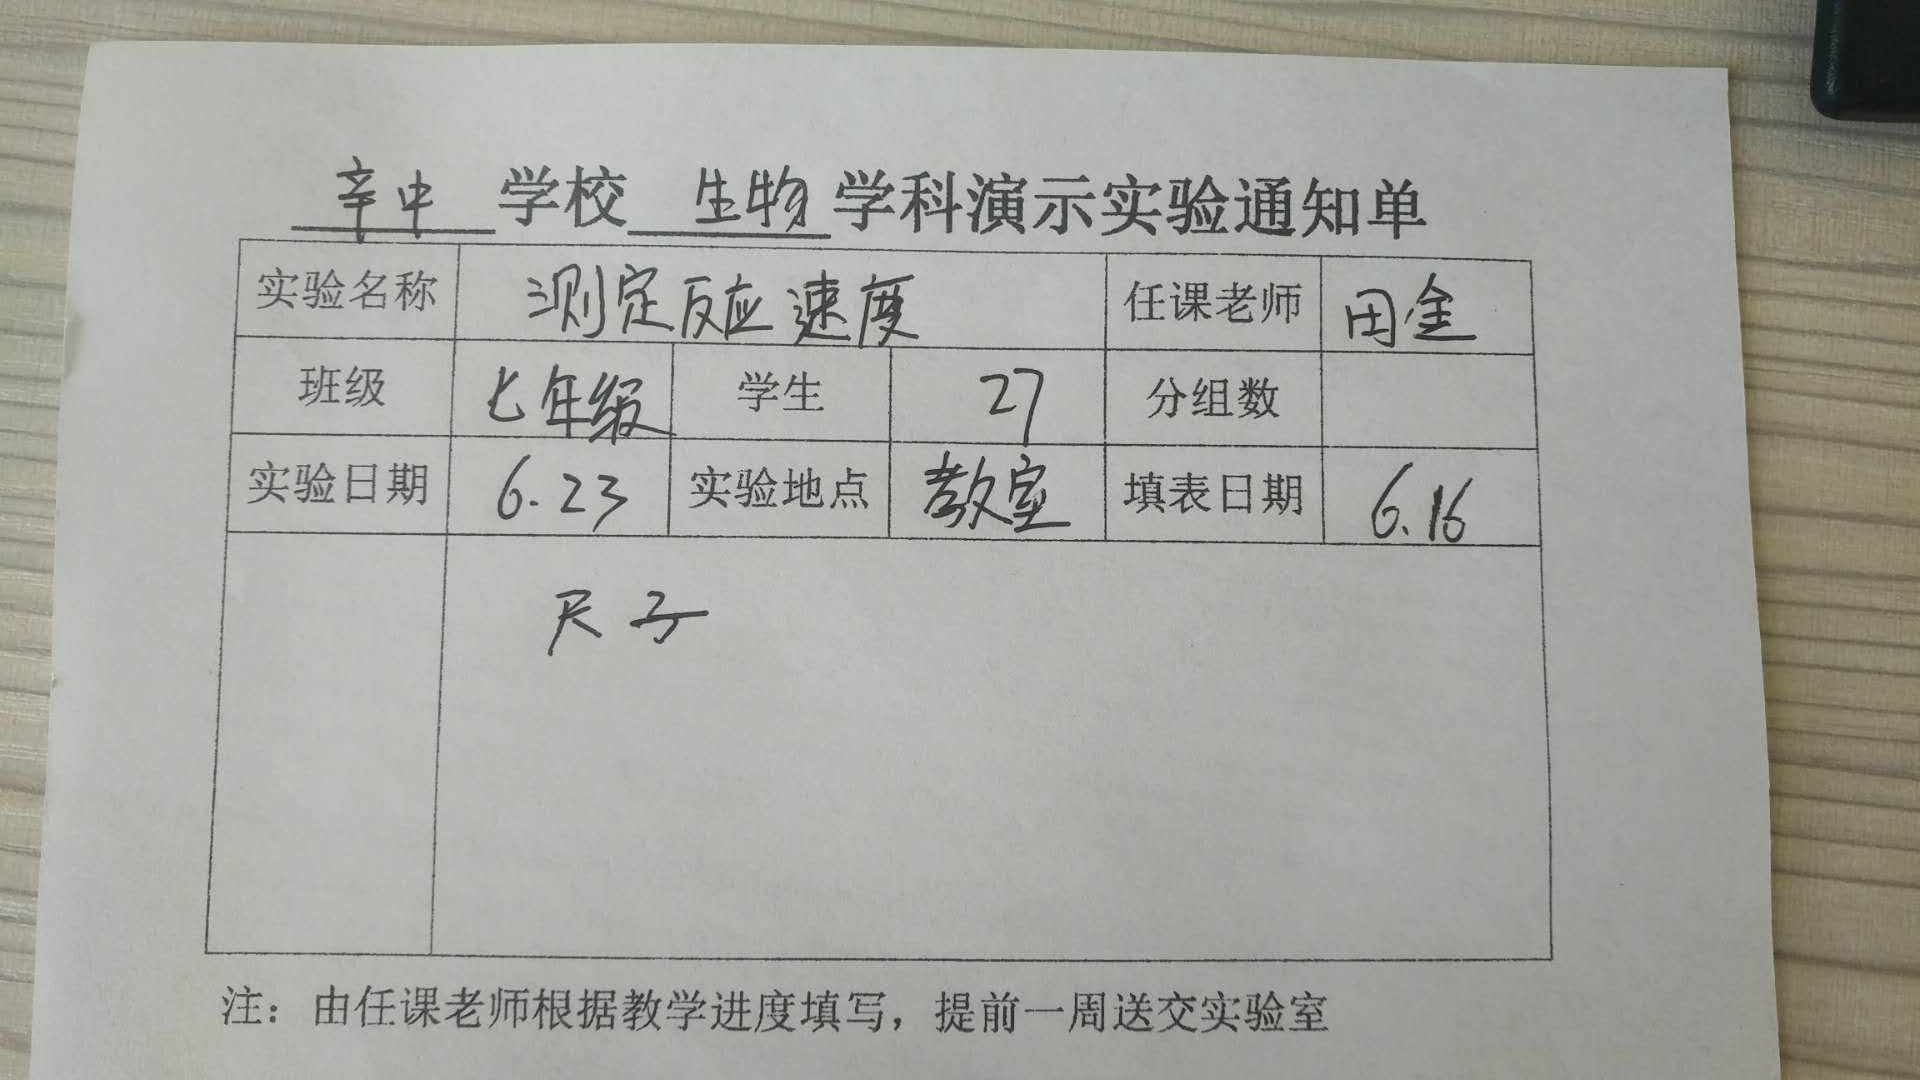 辛中 学校 生物 学科演示实验通知单
实验名称 测定反应速度 任课老师 田金
班级 七年级 学生 27 分组数
实验日期 6.23 实验地点 教室 填表日期 6.16
尺子
注：由任课老师根据教学进度填写，提前一周送交实验室